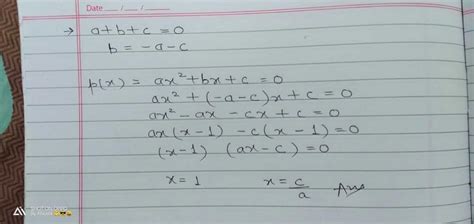 Date __/__/__
→ a+b+c=0
b = -a-c
p(x) = ax²+bx+c=0
ax²+(-a-c)x+c=0
ax²-ax-cx+c=0
ax(x-1)-c(x-1)=0
(x-1) (ax-c)=0
x=1 x=c/a Ans